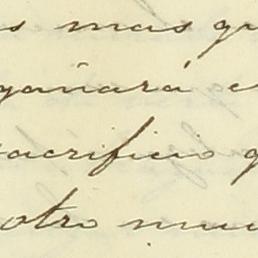 s mas qu
gañará e
sacrificio q
otro mu